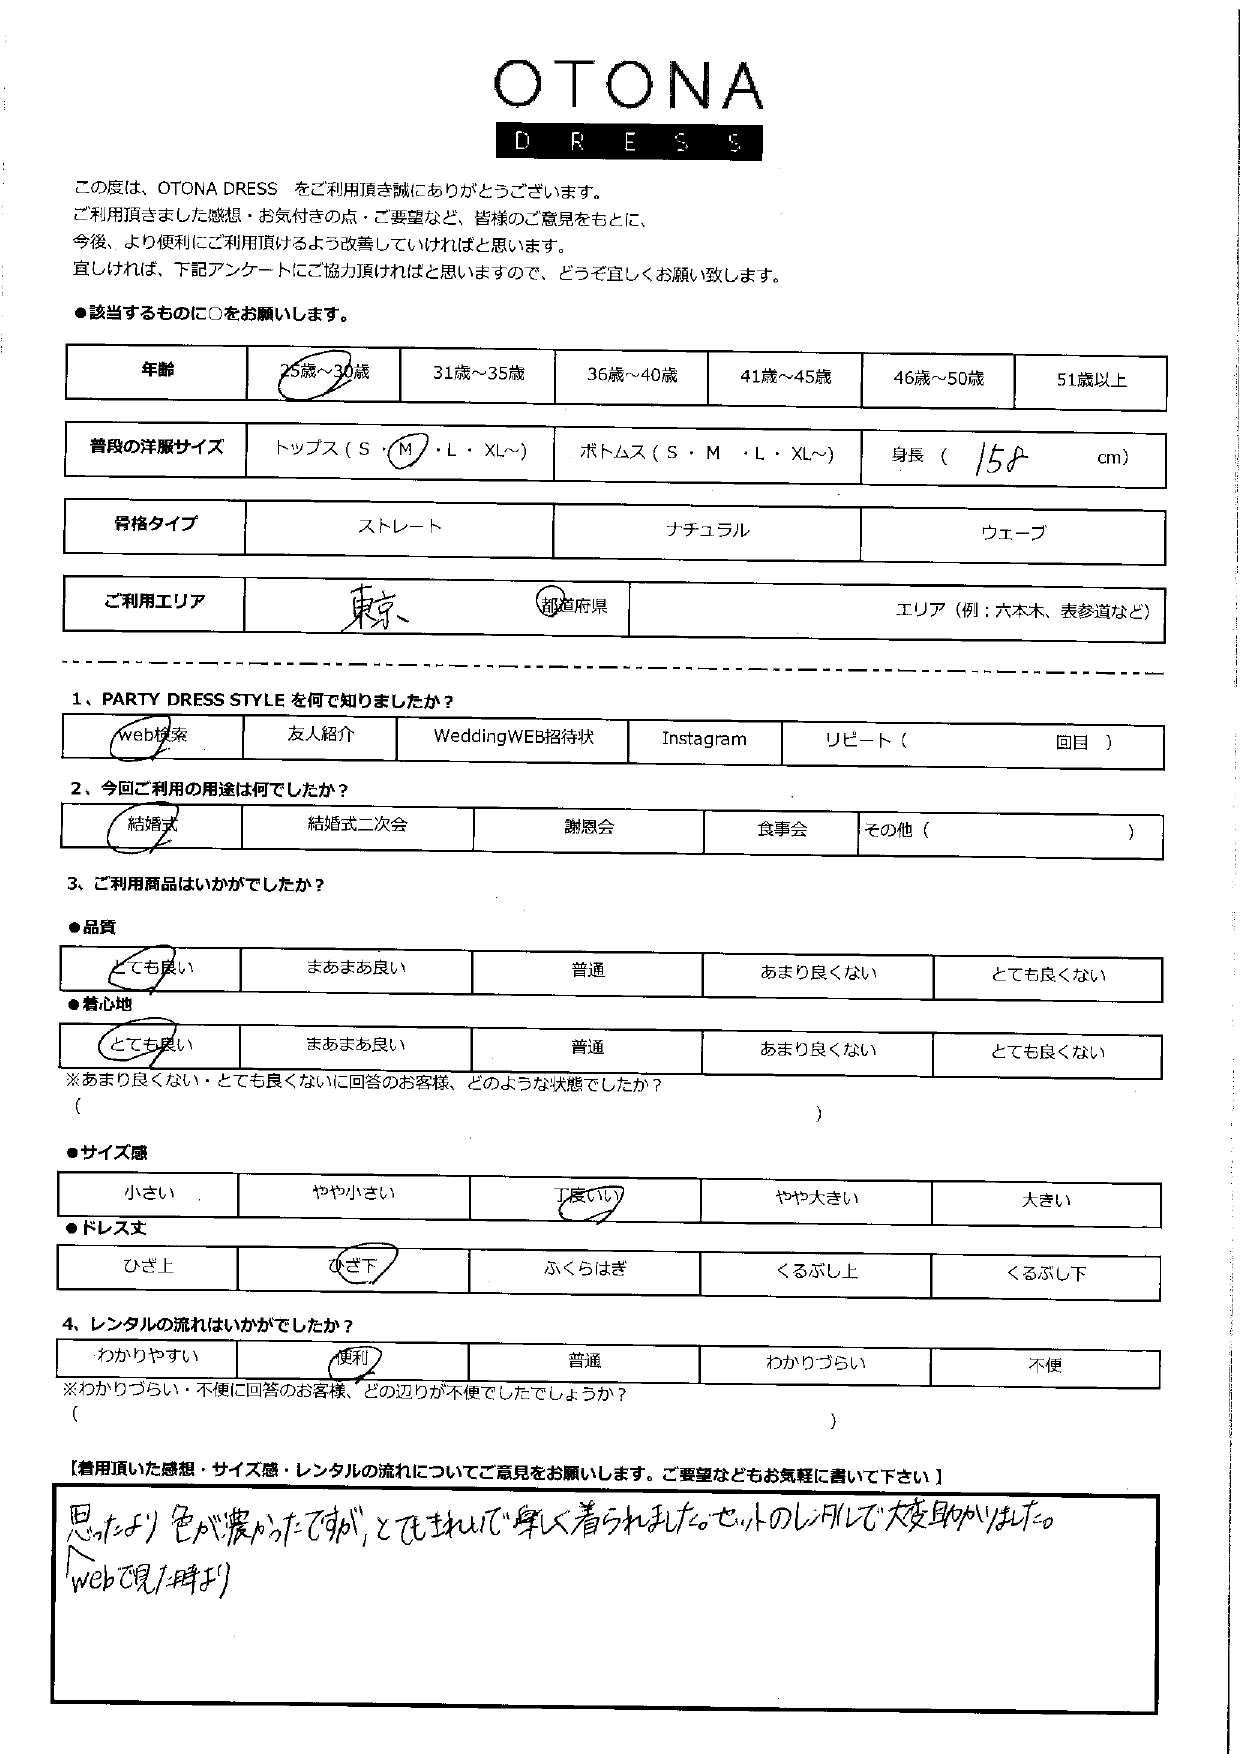 OTONA
DRESS
この度は、OTONA DRESS　をご利用頂き誠にありがとうございます。
ご利用頂きました感想・お気付きの点・ご要望など、皆様のご意見をもとに、
今後、より便利にご利用頂けるよう改善していければと思います。
宜しければ、下記アンケートにご協力頂ければと思いますので、どうぞ宜しくお願い致します。
●該当するものに○をお願いします。
年齢 25歳～30歳 31歳～35歳 36歳～40歳 41歳～45歳 46歳～50歳 51歳以上
普段の洋服サイズ トップス ( S ・ M ・ L ・ XL～) ボトムス ( S ・ M ・ L ・ XL～) 身長 ( 158 cm)
骨格タイプ ストレート ナチュラル ウェーブ
ご利用エリア 東京 都道府県 エリア（例：六本木、表参道など）
1、PARTY DRESS STYLE を何で知りましたか？
web検索 友人紹介 WeddingWEB招待状 Instagram リピート（ 回目 ）
2、今回ご利用の用途は何でしたか？
結婚式 結婚式二次会 謝恩会 食事会 その他（ ）
3、ご利用商品はいかがでしたか？
●品質
とても良い まあまあ良い 普通 あまり良くない とても良くない
●着心地
とても良い まあまあ良い 普通 あまり良くない とても良くない
※あまり良くない・とても良くないに回答のお客様、どのような状態でしたか？
（ ）
●サイズ感
小さい やや小さい 丁度いい やや大きい 大きい
●ドレス丈
ひざ上 ひざ下 ふくらはぎ くるぶし上 くるぶし下
4、レンタルの流れはいかがでしたか？
わかりやすい 便利 普通 わかりづらい 不便
※わかりづらい・不便に回答のお客様、どの辺りが不便でしたでしょうか？
（ ）
【着用頂いた感想・サイズ感・レンタルの流れについてご意見をお願いします。ご要望などもお気軽に書いて下さい 】
思ったより色が濃かったですが、とてもきれいで楽しく着られました。セットのレンタルで大変助かりました。
webで見た時より